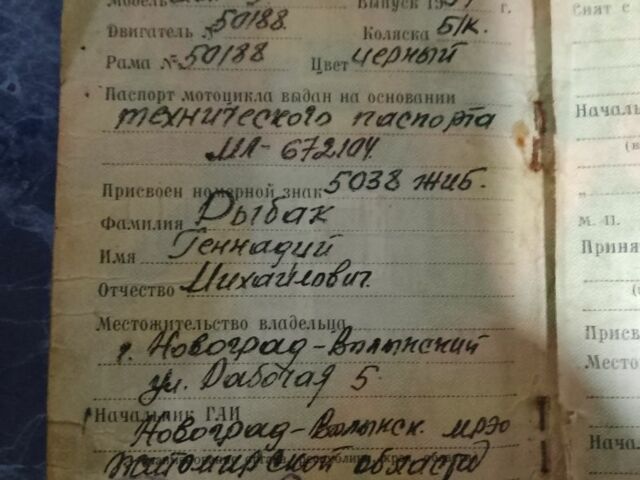 Модель Выпуск 19 г.
Двигатель № 50188. Коляска Б/к.
Рама № 50188 Цвет черный
Паспорт мотоцикла выдан на основании
технического паспорта
МЛ-672104.
Присвоен номерной знак 5038 ЖИБ.
Фамилия Рыбак
Имя Геннадий
Отчество Михайлович.
Местожительство владельца
г. Новоград-Волынский
ул. Рабочая 5.
Начальник ГАИ
Новоград-Волынск. мрэо
Житомирской области
Снят с
Началь
(в
М. П.
Приня
Присв
Место
Нача